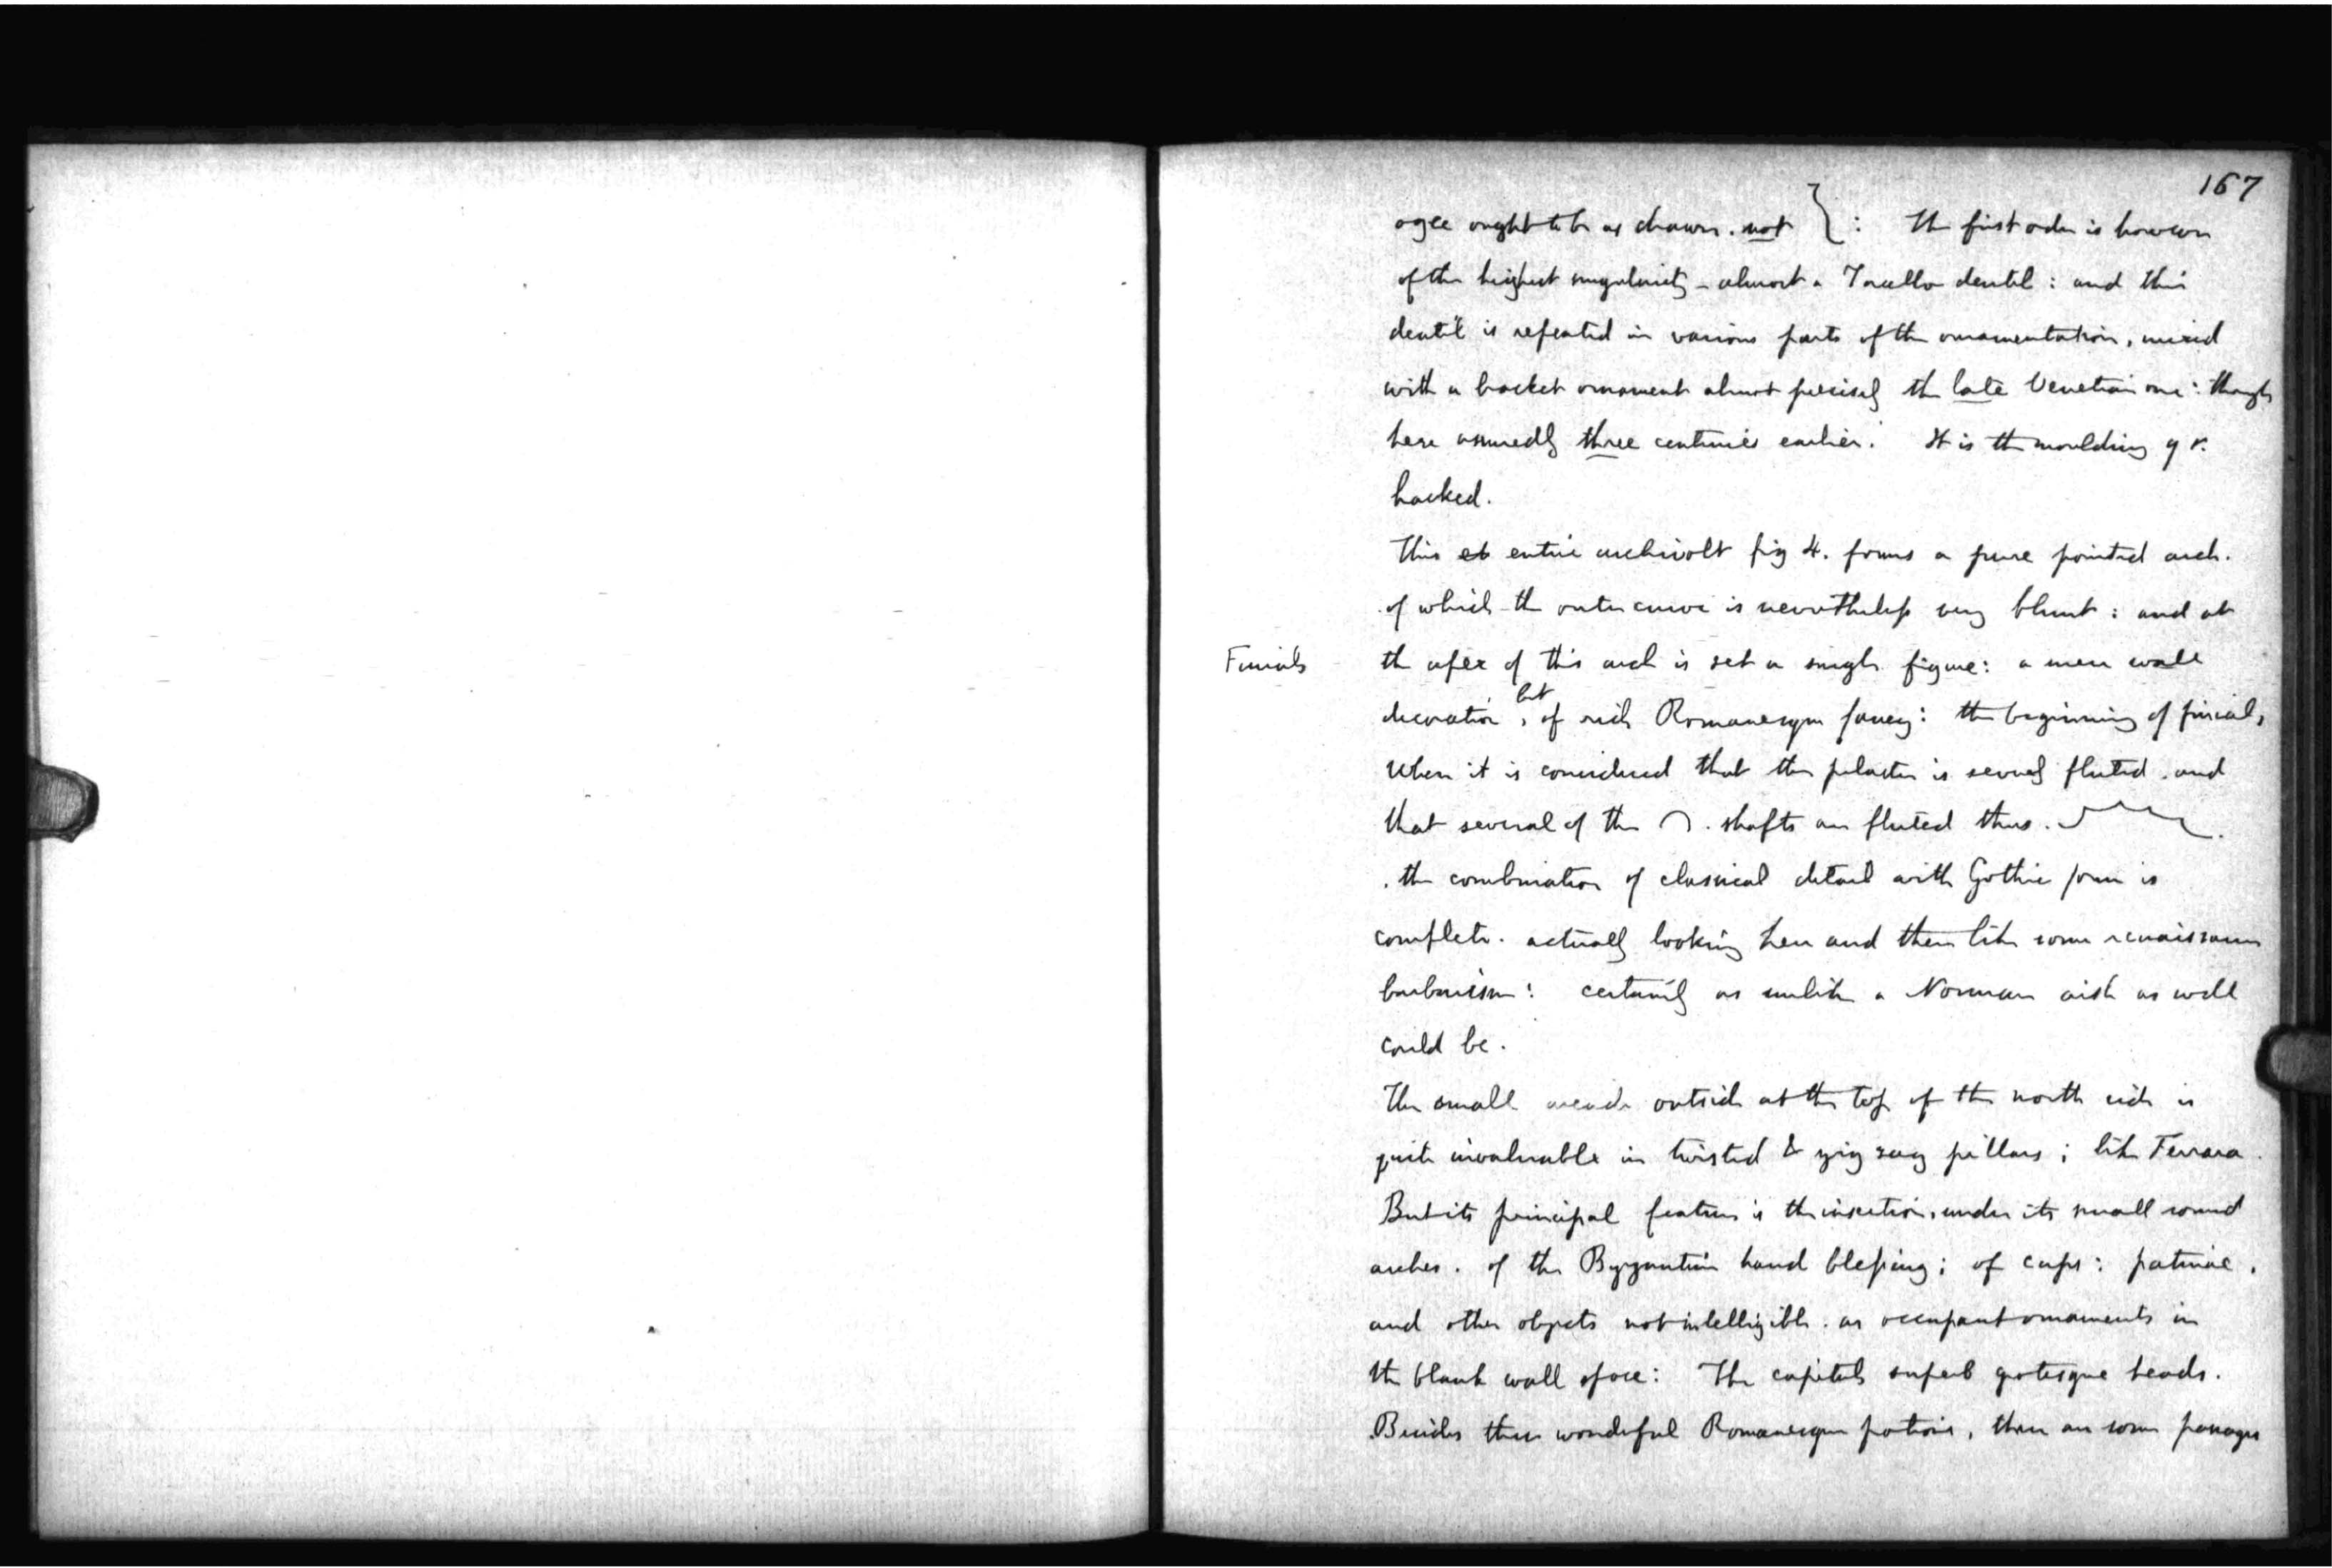 167
ogee ought to be as drawn. not : The first order is however
of the highest singularity - almost a Torcello dentil : and this
dentil is repeated in various parts of the ornamentation, mixed
with a bracket ornament almost precisely the late Venetian one : though
here assuredly three centuries earlier. It is the moulding q r.
hacked.
This entire archivolt fig 4. forms a pure pointed arch.
of which the outer curve is nevertheless very blunt : and at
Finials
the apex of this arch is set a single figure : a mere wall
decoration, but of rich Romanesque fancy : the beginning of finials,
When it is considered that the pilaster is fluted. and
that several of the shafts are fluted thus.
. the combination of classical detail with Gothic form is
complete. actually looking here and there like some renaissance
barbarism : certainly as unlike a Norman aisle as well
could be.
The small arcade outside at the top of the north side is
quite invaluable in twisted & zig zag pillars ; like Ferrara.
But its principal feature is the insertion, under its small round
arches. of the Byzantine hand blessing ; of cups : paterae,
and other objects not intelligible. as occupant ornaments in
the blank wall space : The capitals superb grotesque heads.
Besides these wonderful Romanesque portions, there are some passages